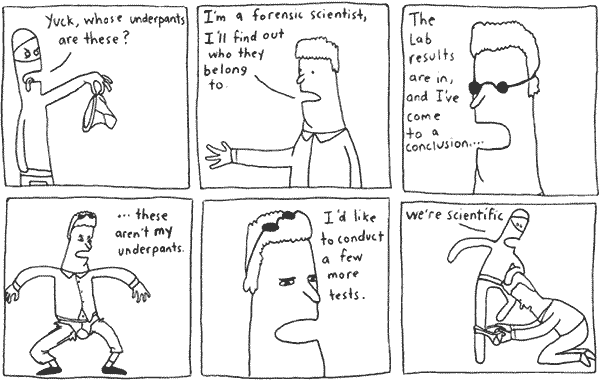 Yuck, whose underpants
are these?
I'm a forensic scientist,
I'll find out
who they
belong
to.
The
Lab
results
are in,
and I've
come
to a
conclusion....
... these
aren't my
underpants.
I'd like
to conduct
a few
more
tests.
we're scientific